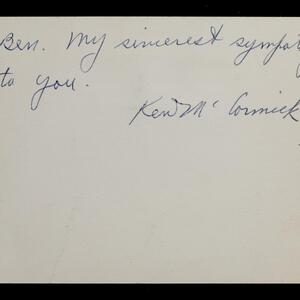 Ben. My sincerest sympat
to you.
Ken Mc Cormick